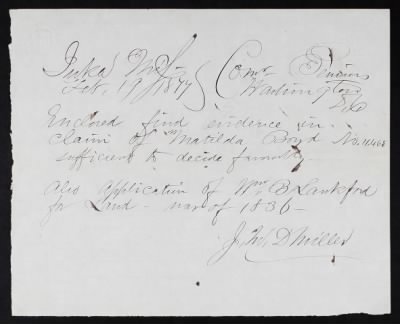 Iuka Miss
Feb. 19/1877
Comr Pensions
Washington
D.C.
Enclosed find evidence in
claim of Matilda Boyd No. 11,464
sufficient to decide favorably—
Also Application of Wm B Lankford
for Land—war of 1836—